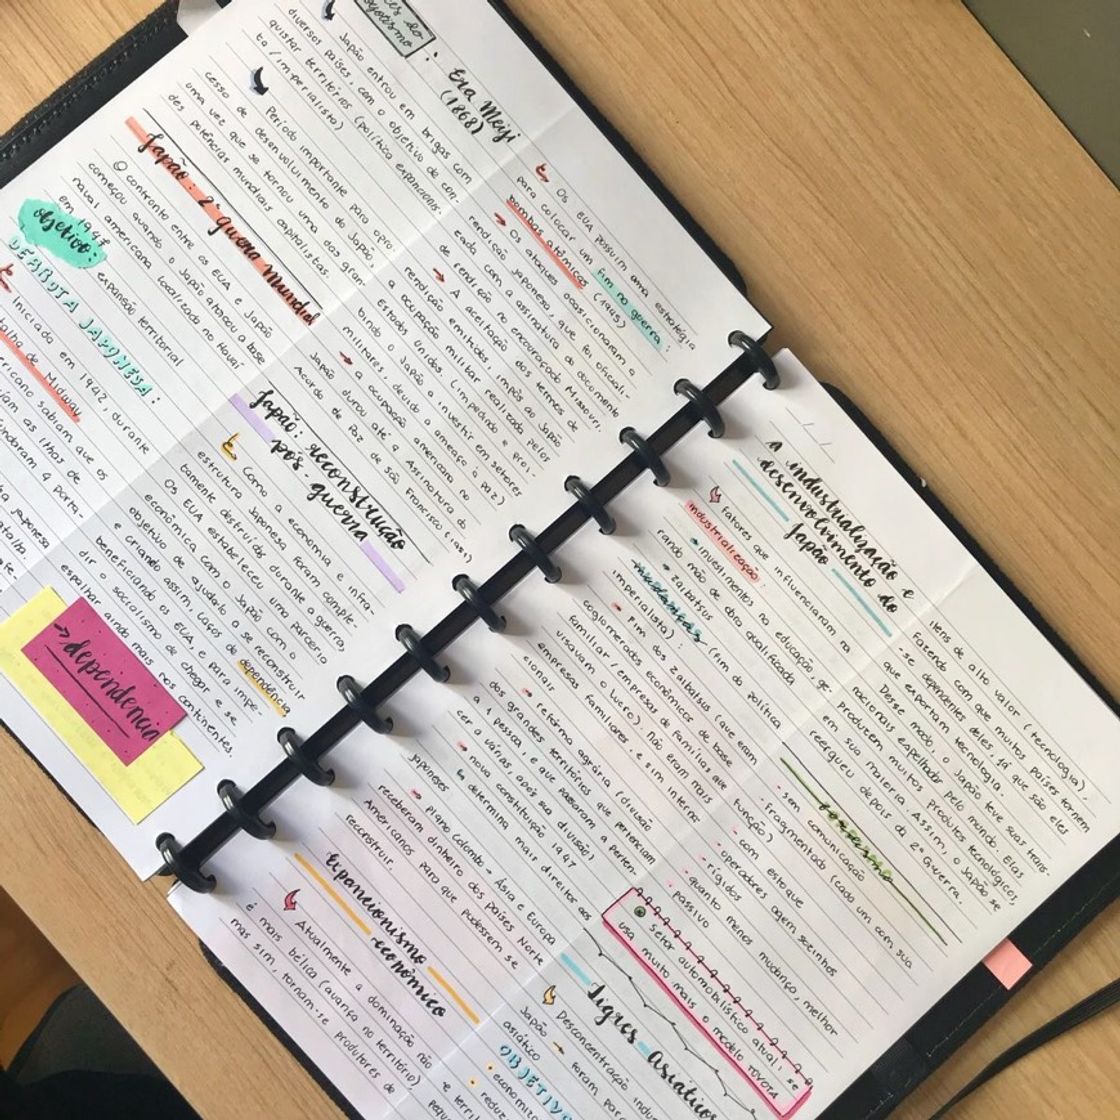 Toyotismo :
Era Meiji
(1868)
Japão entrou em brigas com
diversos países, com o objetivo de con-
quistar territórios (política expancionis-
ta/imperialista)
Período importante para o pro-
cesso de desenvolvimento do Japão,
uma vez que se tornou uma das gran-
des potências mundiais capitalistas
Japão: 2ª guerra mundial
O confronto entre os EUA e Japão
começou quando o Japão atacou a base
naval americana localizada no Havaí
em 1947
objetivo: expansão territorial
DERROTA JAPONESA :
Iniciado em 1942, durante
Midway
ricano sabiam que os
as ilhas de
4 porta-
japonesa
Os EUA possuim uma estratégia
para colocar um fim na guerra:
bombas atômicas (1945)
Os ataques ocasionaram a
rendição japonesa, que foi oficiali-
zada com a assinatura do documento
de rendição no encouraçado Missouri.
A aceitação dos termos de
rendição emitidos impôs ao Japão
a ocupação militar realizada pelos
Estados unidos (impedindo e proi-
bindo o Japão a investir em setores
militares, devido a ameaça a paz)
a ocupação americana no
Japão durou até a Assinatura do
Acordo de Paz de são Francisco (1951)
Japão: reconstrução
pós guerra
Como a economia e infra-
estrutura Japonesa foram comple-
tamente destruídas durante a guerra,
Os EUA estabeleceu uma parceria
econômica com o Japão com o
objetivo de ajudalo a se reconstruir
e criando assim, laços de dependência
beneficiando os EUA, e para impe-
dir o socialismo de chegar e se
espalhar ainda mais nos continentes.
→ dependencia
A industrialização e
desenvolvimento do
Japão
Fatores que influenciaram na
industrialização:
investimentos na educação, ge-
rando mão de obra qualificada
zaibatsus
mudanças (fim da política
imperialista):
Fim dos zaibatsus (que eram
coglomerados econômicos de base
familiar/empresas de famílias que
visavam o lucro) não eram mais
empresas familiares, e sim interna-
cionais
retorma agrária (divisão
dos grandes territórios que pertenciam
a 1 pessoa, e que passaram a perten-
cer a várias, após sua divisão)
nova constituição 1947
determina mais direitos aos
japoneses
plano Colombo → Ásia e Europa
receberam dinheiro dos países Norte
Americanos para que pudessem se
reconstruir.
Expancionismo
econômico
Atualmente a dominação não
é mais bélica (avança no território)
mas sim, tornam-se produtores de
itens de alto valor (tecnologia),
Fazendo com que muitos países tornem
-se dependentes deles, já que são eles
que exportam tecnologia.
Desse modo, o Japão teve suas trans-
nacionais espelhada pelo mundo. Elas
produzem muitos produtos tecnológicos,
em sua maioria. Assim, o Japão se
reergueu depois da 2ª Guerra.
sem comunicação
fragmentado (cada um com sua
Função)
com estoque
operadores agem sozinhos
rígidos
quanto menos mudança, melhor
passivo
Setor automobilístico atual: se
usa muito mais o modelo TOYOTA
Tigres Asiáticos
Desconcentração
Japão → foram para
asiático
OBJETIVO